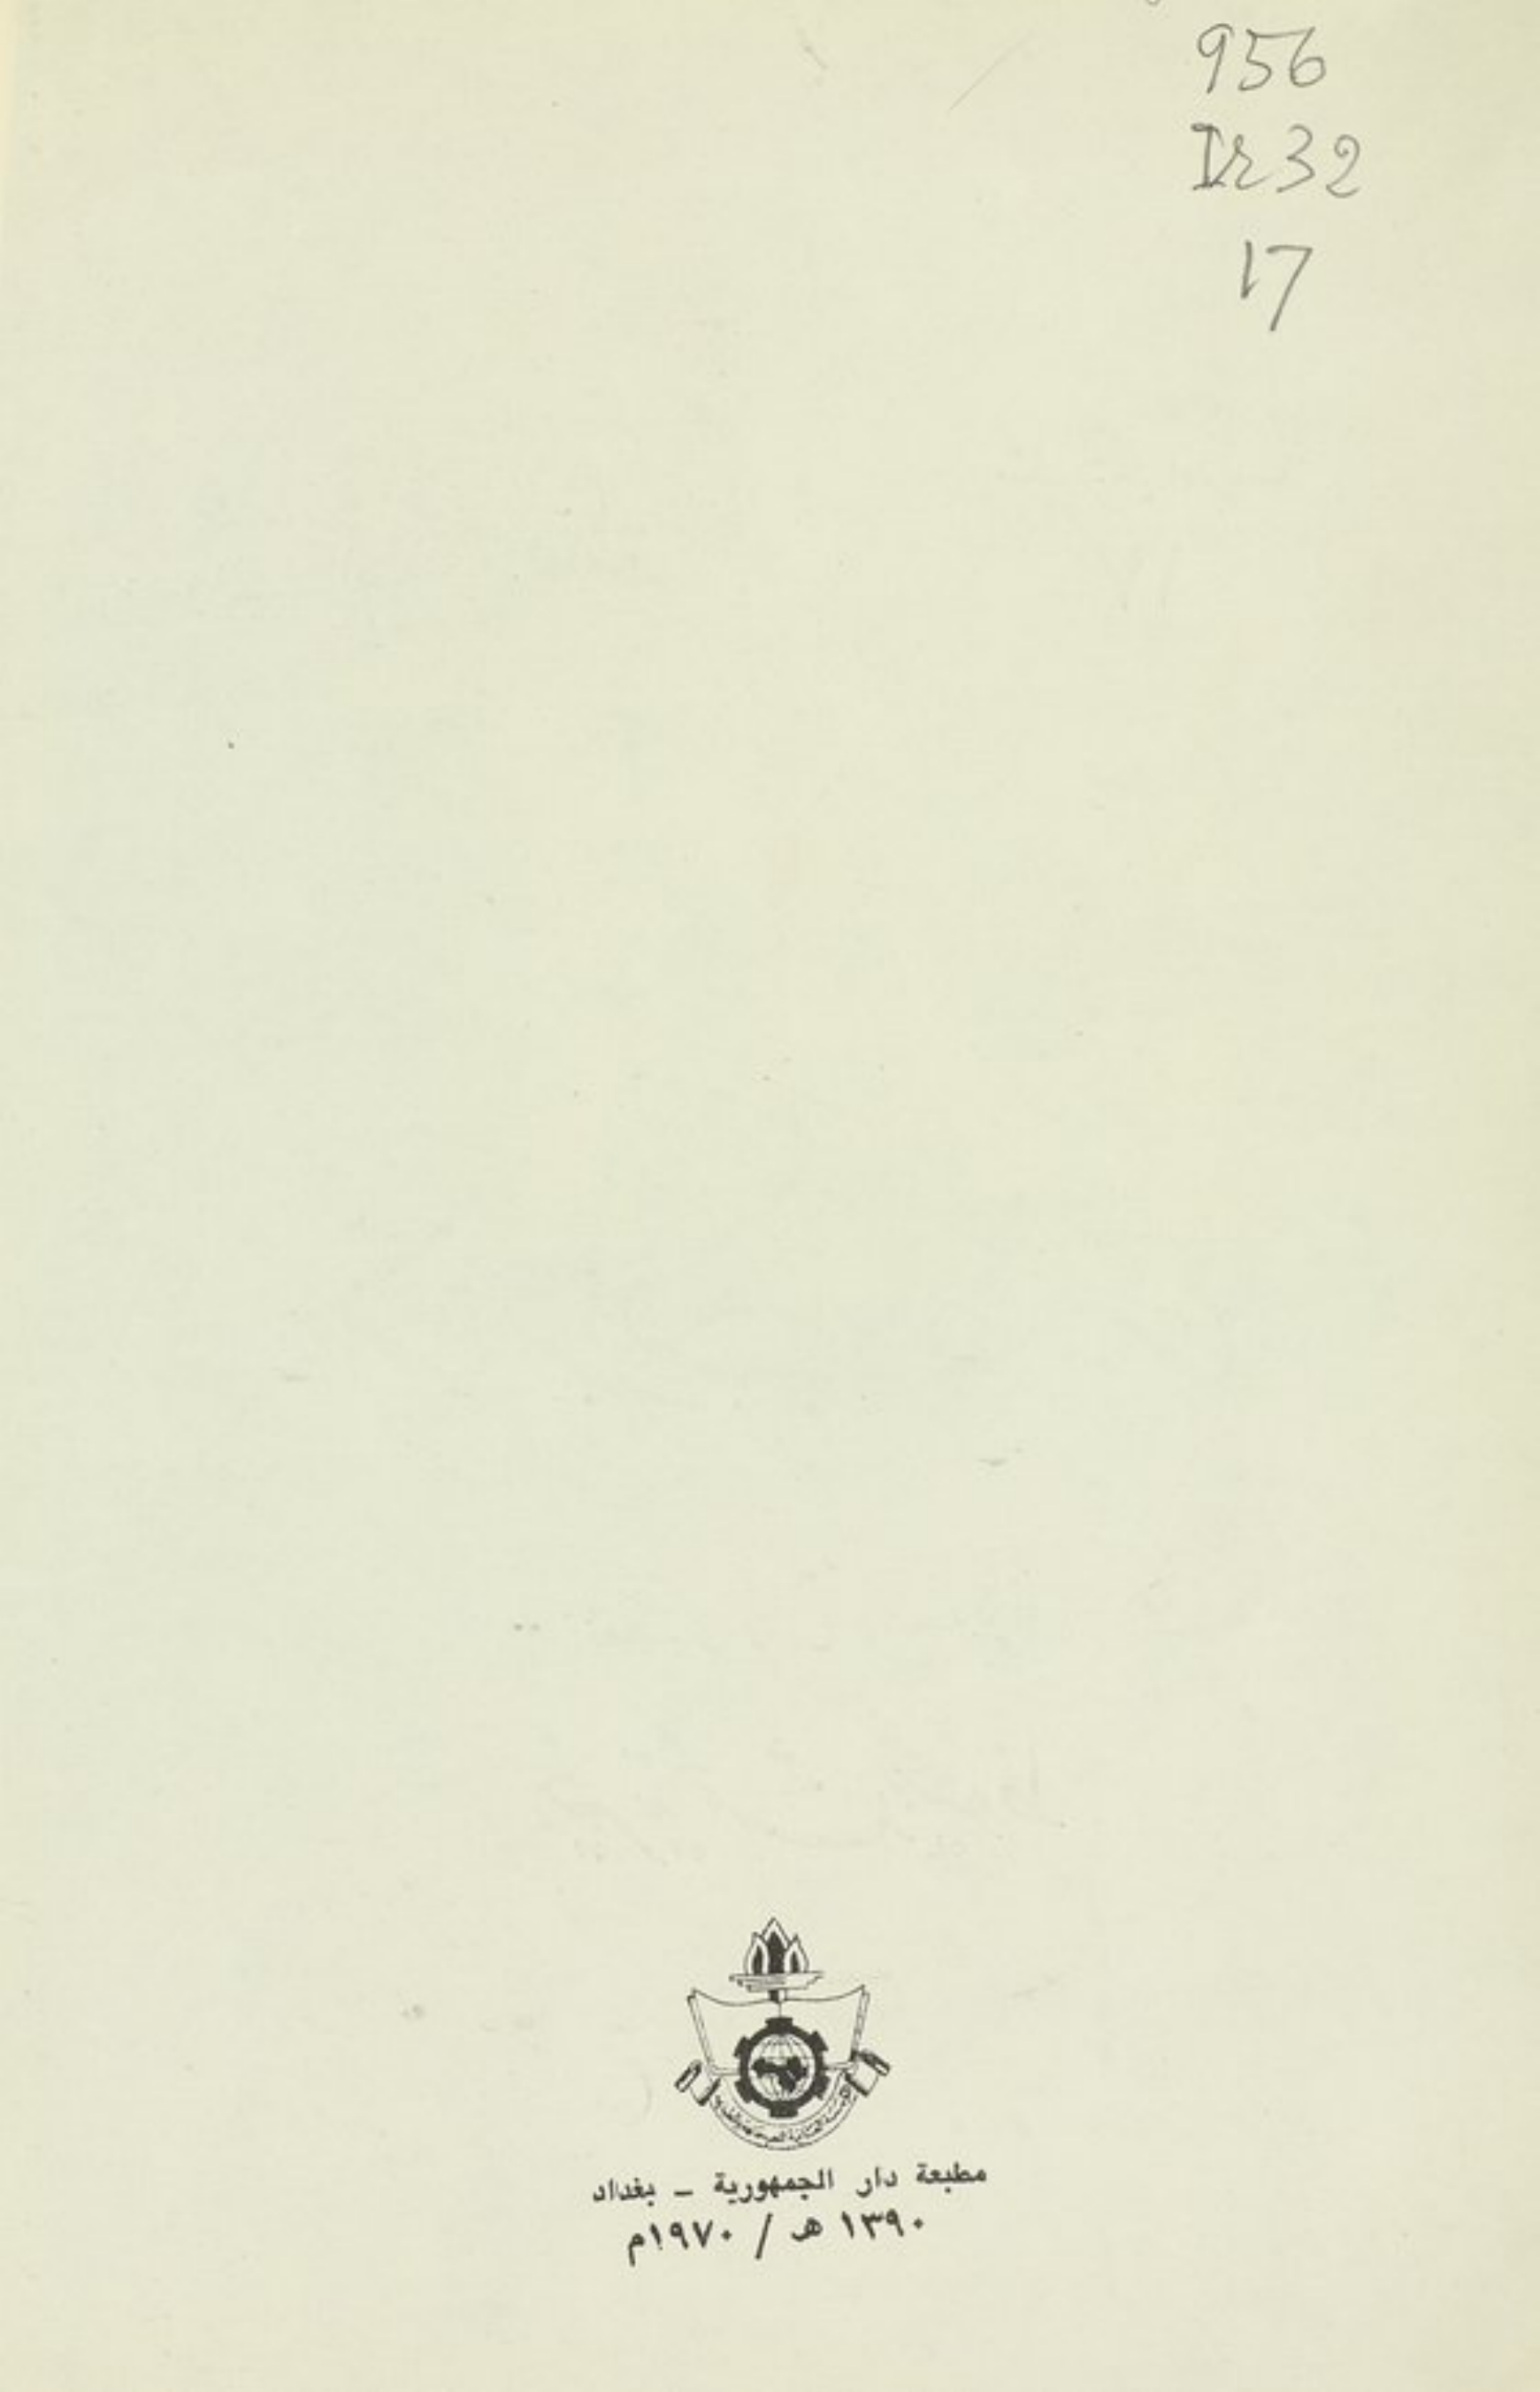 956
Ir32
17
مطبعة دار الجمهورية – بغداد
١٣٩٠ هـ / ١٩٧٠م